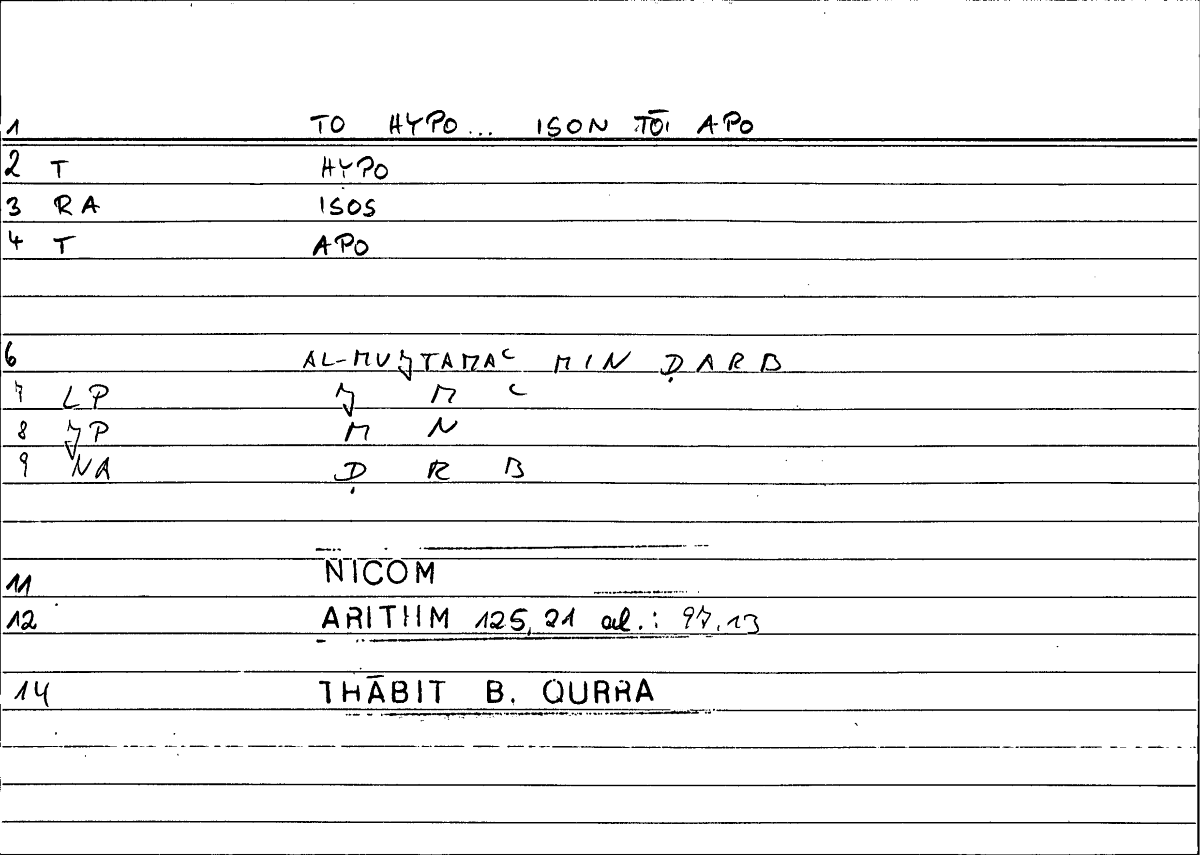 1 TO HYPO... ISON TŌI APO
2 T HYPO
3 RA ISOS
4 T APO
6 AL-MUJTAMAʿ MIN ḌARB
7 LP J M ʿ
8 JP M N
9 NA Ḍ R B
11 NICOM
12 ARITHM 125,21 al.: 97,13
14 THĀBIT B. QURRA